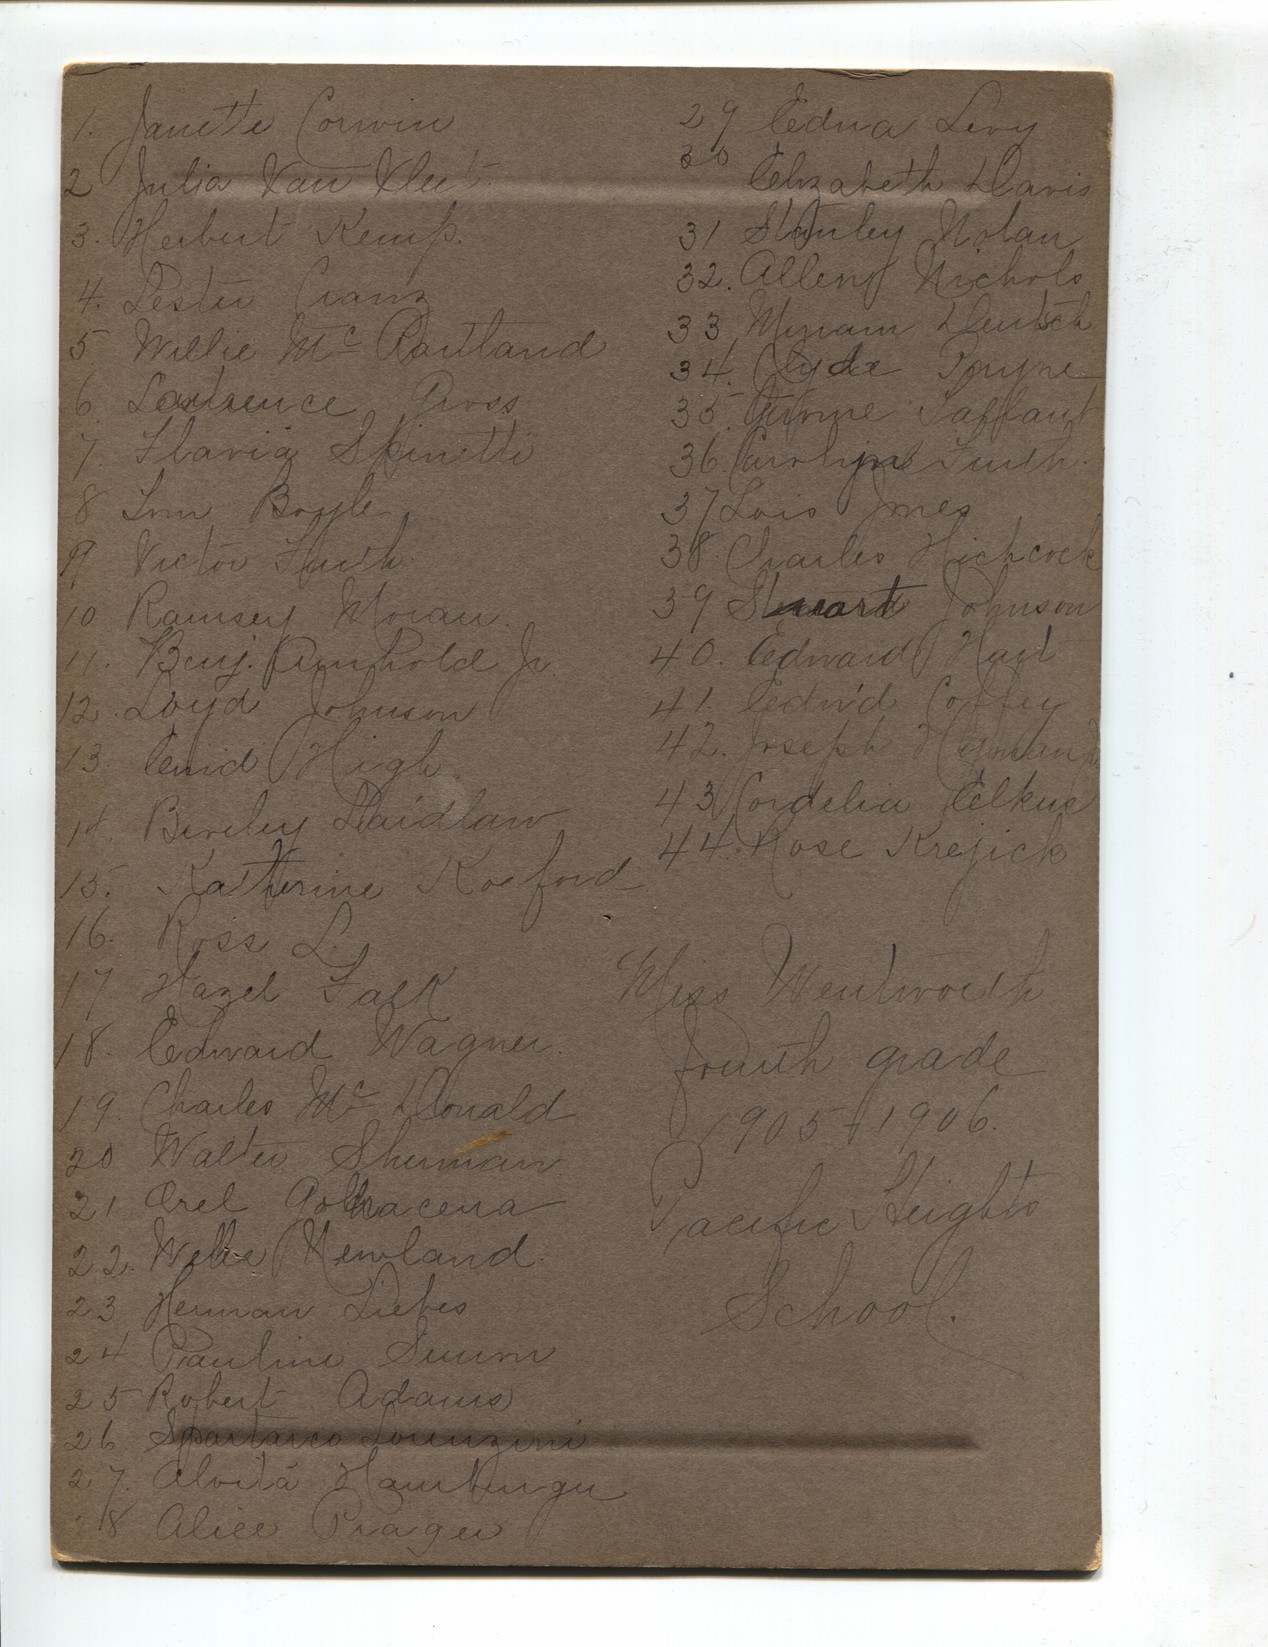 1. Janette Corwin
2 Julia Van Vleet
3. Herbert Kemp.
4. Lester Cranz
5 Willie Mc Partland
6 Lawrence Gross
7. Flavia Spinetti
8 Boyle
9 Victor Furth.
10 Ramsey Moran.
11. Benj. Armhold Jr.
12. Loyd Johnson
13. Enid High
14. Birdley Laidlaw
15. Katherine Rosford
16. Ross L.
17 Hazel Falk
18. Edward Wagner.
19. Charles Mc Donald
20 Walter Sherman
21 Orel
22. Newland.
23 Herman Liebes
24 Pauline
25 Robert Adams
26 Spartaco Lorenzini
27. Alvita Hamburger
8 Alice Prager
29 Edna Levy
30 Elizabeth Davis
31 Stanley Nolan
32. Allen Nichols
33 Miriam Deutsch
34. Clyde Payne
35. Jerome
36. Carolyn Furth.
37 Lois Jones
38. Charles Hichcock
39 Stuart Johnson
40. Edward Hart
41. Edw'd Coffey
42. Joseph
43 Cordelia Elkus
44. Rose Krejick
Miss Wentworth
fourth grade
1905-1906.
Pacific Heights
School.